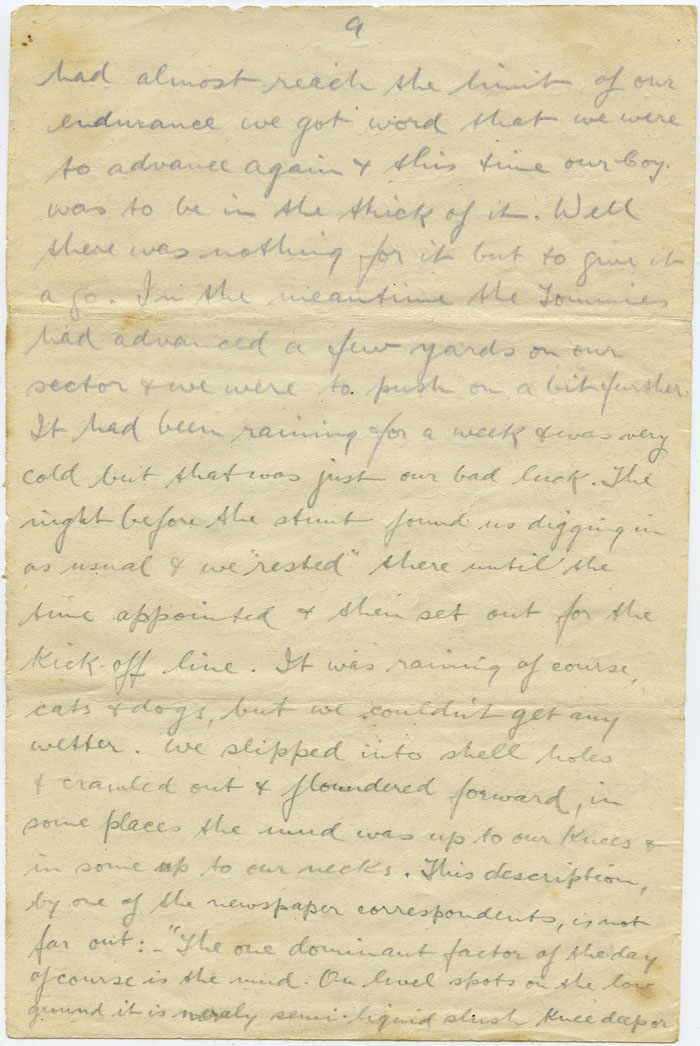 9
had almost reach the limit of our
endurance we got word that we were
to advance again & this time our Coy.
was to be in the thick of it. Well
there was nothing for it but to give it
a go. In the meantime the Tommies
had advanced a few yards on our
sector & we were to push on a bit further
It had been raining for a week & was very
cold but that was just our bad luck. The
night before the stunt found us digging in
as usual & we "rested" there until the
time appointed & then set out for the
Kick-off line. It was raining of course,
cats & dogs, but we couldn't get any
wetter. We slipped into shell holes
& crawled out & floundered forward, in
some places the mud was up to our knees &
in some up to our necks. This description,
by one of the newspaper correspondents, is not
far out:- "The one dominant factor of the day
of course is the mud. On level spots on the low
ground it is merely semi-liquid slush knee deep or